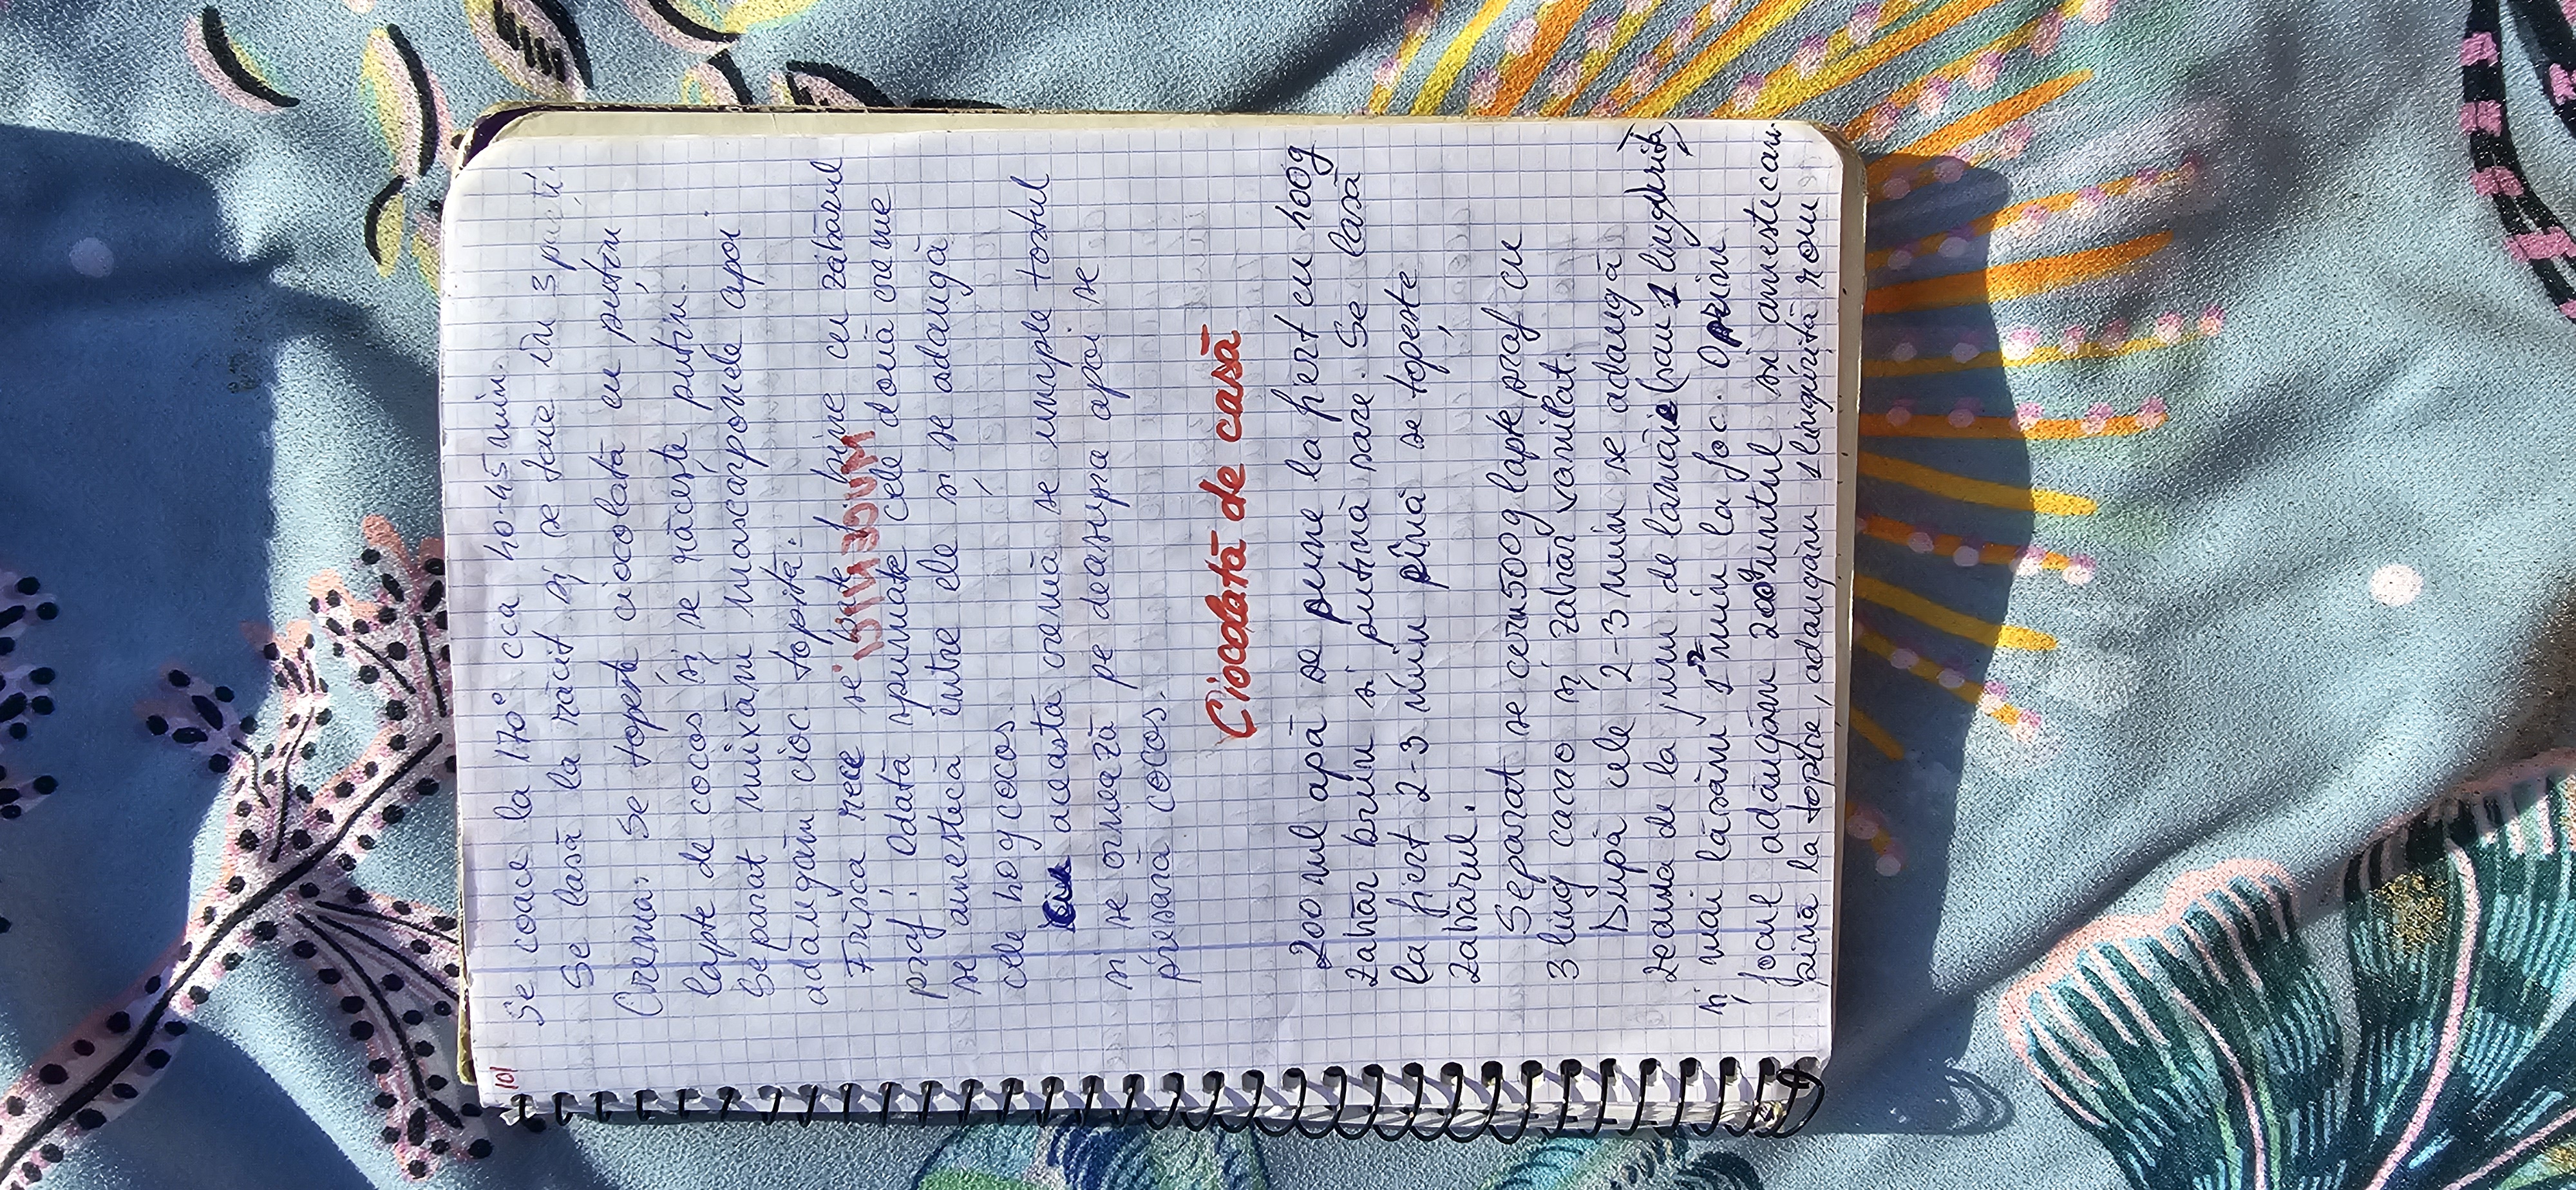 101
Se coace la 170° cca 40-45 min.
Se lasă la răcit și se taie în 3 părți.
Crema: Se topește ciocolată cu puțin
lapte de cocos și se răcește puțin.
Separat mixăm mascarponele apoi
adăugăm cioc. topită.
Frișca rece se bate f. bine cu zahărul
praf. Odată spumate cele două creme
se amestecă între ele și se adaugă
cele 40 g cocos.
Cu această cremă se umple tortul
și se ornează pe deasupra apoi se
presară cocos.
Ciocolată de casă
200 ml apă se pune la fiert cu 400g
zahăr brun și puțină sare. Se lasă
la fiert 2-3 min pînă se topește
zahărul.
Separat se cern 500g lapte praf cu
3 ling cacao și zahăr vanilat.
După cele 2-3 min se adaugă
zeama de la jum. de lămâie (sau 1 linguriță)
și mai lăsăm 1-2 min la foc. Oprim
focul adăugăm 200g untul și amestecăm
pînă la topire, adaugăm 1 linguriță rom
MUCENICI